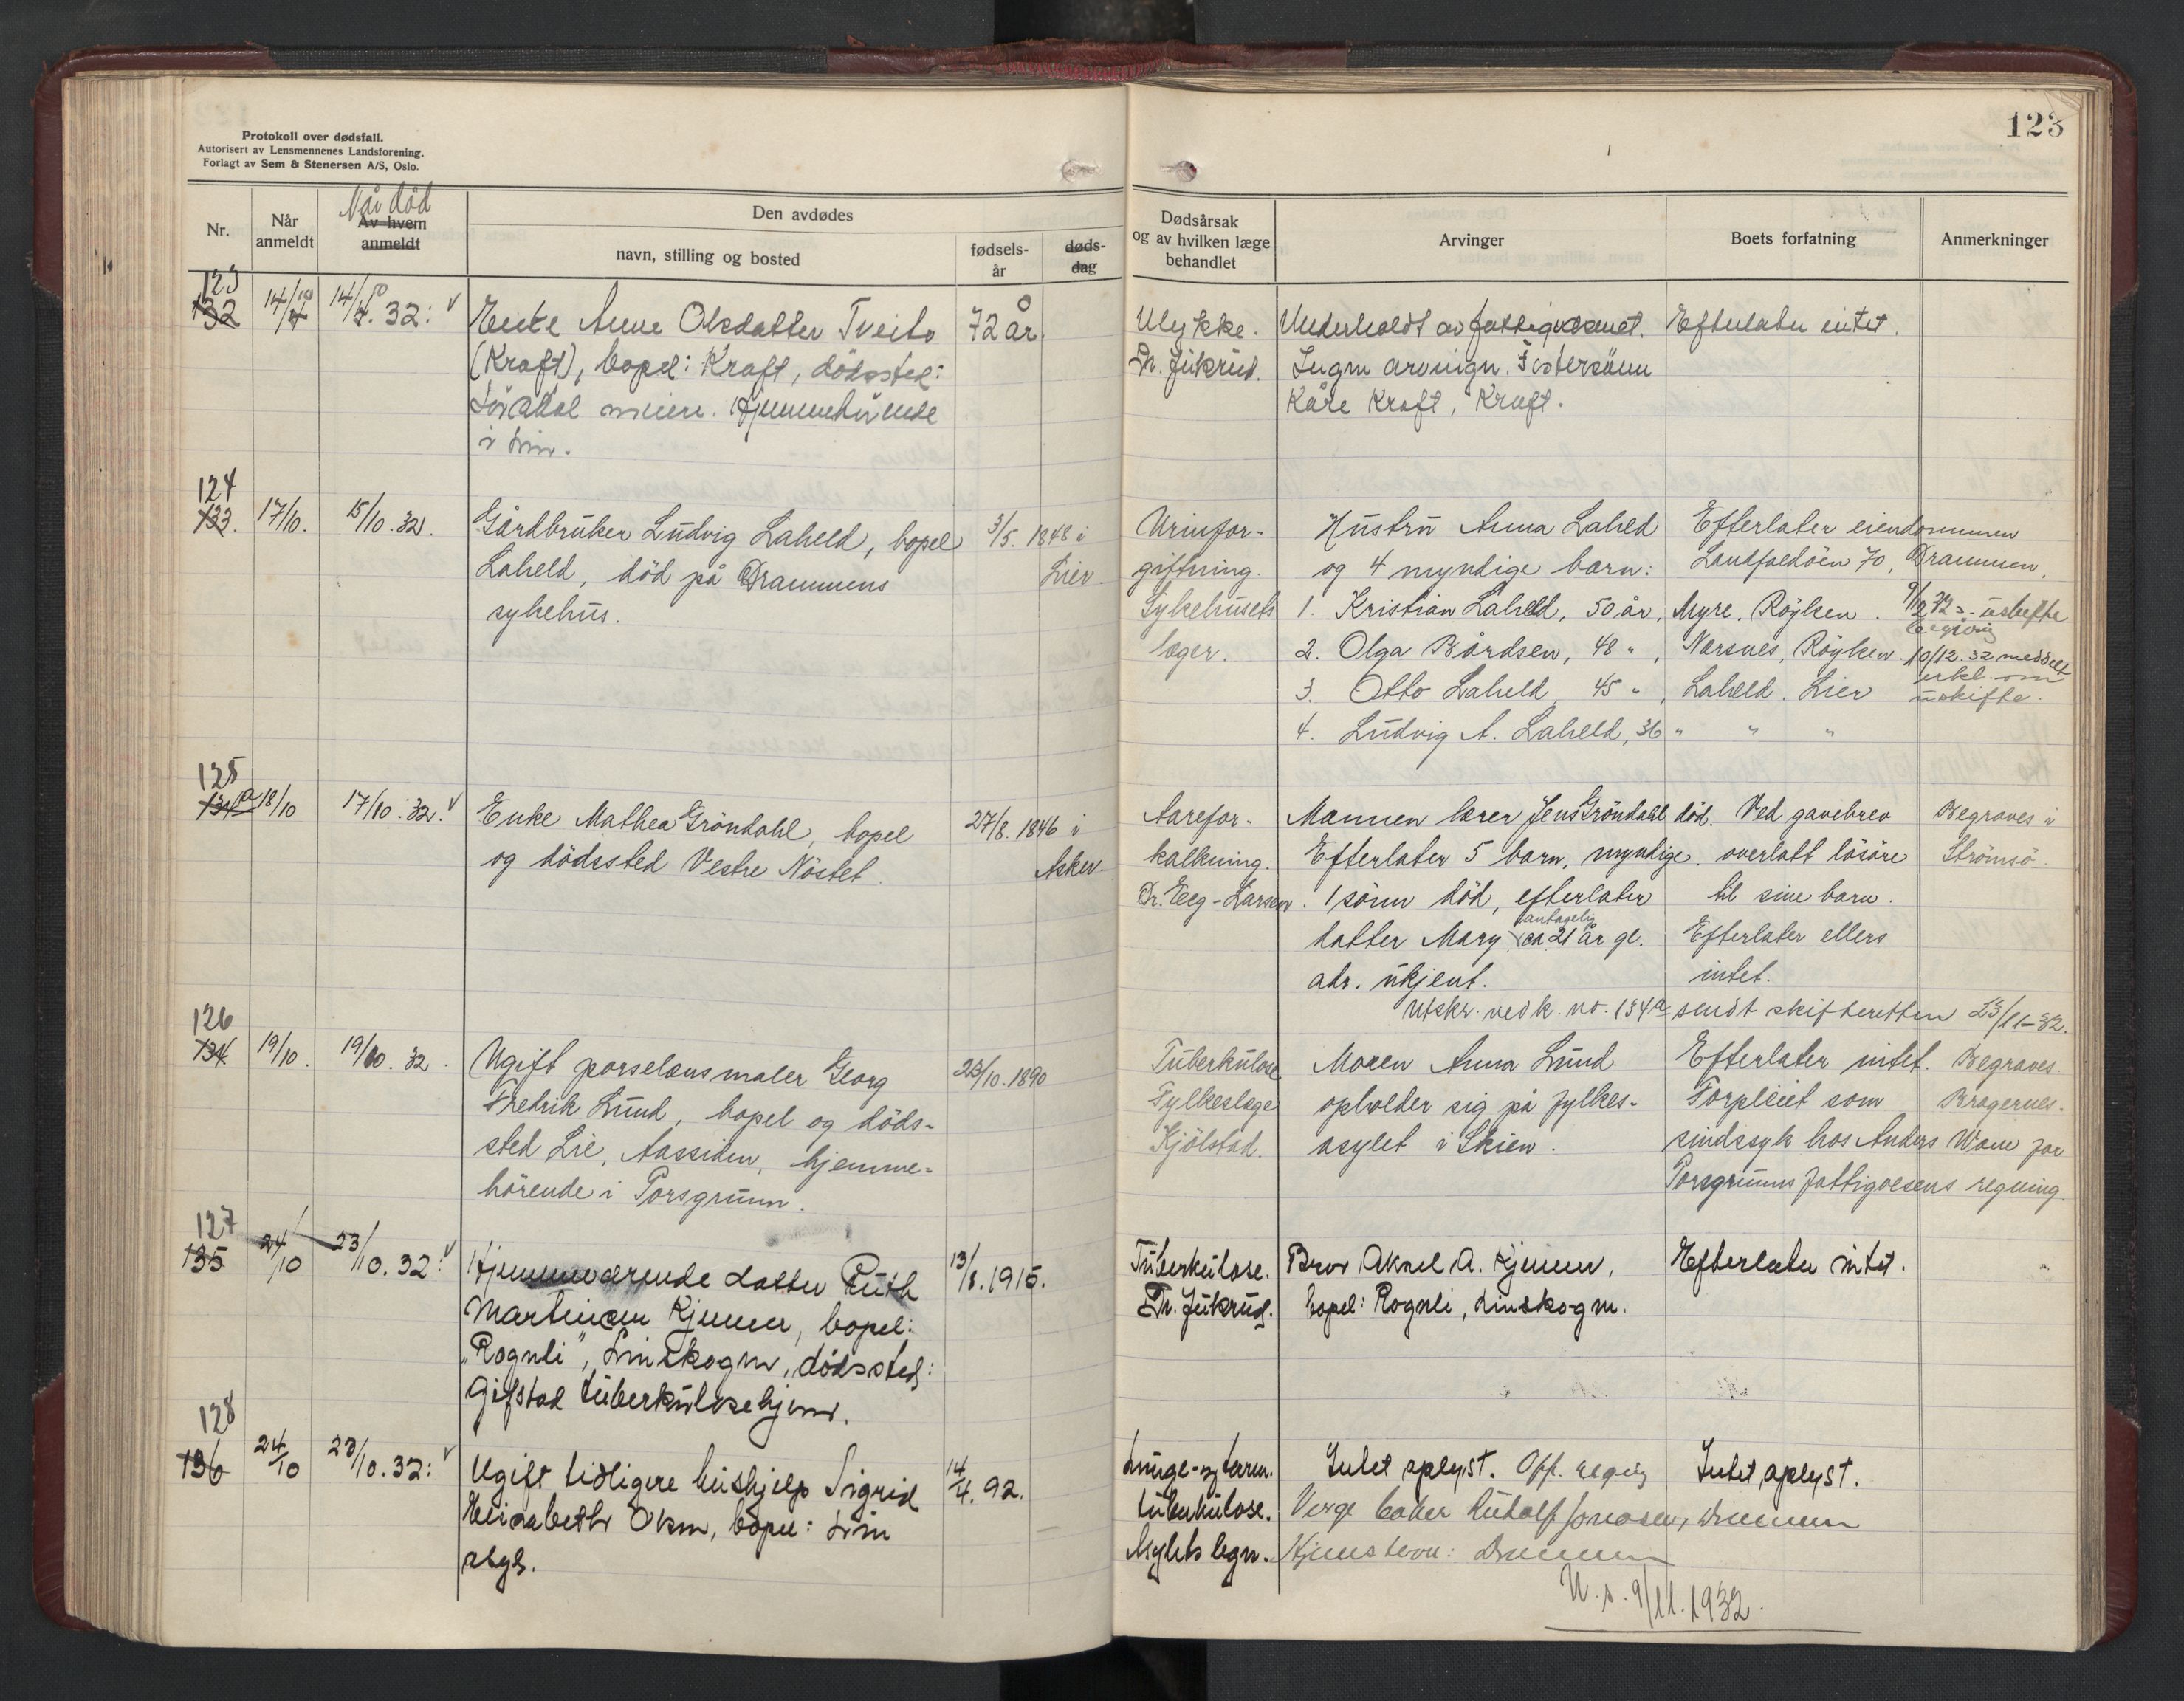 Protokoll over dødsfall.
Autorisert av Lensmennenes Landsforening.
Forlagt av Sem & Stenersen A/S, Oslo.
123
Nr.
Når anmeldt
Når død
Av hvem anmeldt
Den avdødes
navn, stilling og bosted
fødsels-år
døds-dag
Dødsårsak og av hvilken læge behandlet
Arvinger
Boets forfatning
Anmerkninger
123
132 14/10 14/10. 32. Enke Anne Olsdatter Tveito 72 år. Ulykke. Underholdt av fattigvesenet. Efterlater intet.
(Kraft), bopel: Kraft, dödssted: Dr. Jukrud. Ingen arvinger. Fostersönn
meieri. Hjemmehörende Kåre Kraft, Kraft.
i Lier.
124
133. 17/10. 15/10. 32. Gårdbruker Ludvig Laheld, bopel 3/5. 1848 i Urinfor- Hustru Anna Laheld Efterlater eiendommen
Laheld, död på Drammens Lier. giftning. og 4 myndige barn: Landfaldöen 70, Drammen.
sykehus. Sykehusets 1. Kristian Laheld, 50 år, Myre, Röyken.
læger. 2. Olga Bårdsen, 48 " , Nærsnes, Röyken. 10/12. 32 meddelt
3. Otto Laheld, 45 " , Laheld. Lier erkl. om uskifte.
4. Ludvig A. Laheld, 36 " " "
125
134a 18/10 17/10. 32. Enke Mathea Gröndahl, bopel 27/8. 1846 i Aarefor- Mannen lærer Jens Gröndahl död. Ved gavebrev Begraves i
og dödssted Vestre Nöstet. Asker. kalkning. Efterlater 5 barn, myndige. overlatt lösöre Strömsö.
Dr. Eeg-Larsen. 1 sönn död, efterlater til sine barn.
datter Mary antagelig ca 21 år gl. Efterlater ellers
adr. ukjent. intet.
Utskr. vedk. no. 134a sendt skifteretten 23/11-32.
126
134. 19/10. 19/10. 32. Ugift porselensmaler Georg 23/10. 1890 Tuberkulose Moren Anna Lund Efterlater intet. Begraves.
Fredrik Lund, bopel og döds- Fylkeslæge opholder sig på fylkes- Forpleiet som Bragernes.
sted Lie, Aassiden, hjemme- Kjölstad. asylet i Skien. sindssyk hos Anders Wam for
hörende i Porsgrunn. Porsgrunns fattigvesens regning.
127
135 24/10 23/10. 32. Hjemmeværende datter Ruth 13/8. 1915. Tuberkulose. Bror Aksel A. Kjemer, Efterlater intet.
Martinsen Kjemer, bopel: Dr. Jukrud. bopel: Rognli, Lierskogen.
"Rognli", Lierskogen, dödssted:
Gifstad tuberkulosehjem.
128
136 24/10 23/10. 32: Ugift tidligere hushjelp Sigrid 14/4. 92. Lunge- og tarm- Intet oplyst. Intet oplyst.
Elisabeth Olsen, bopel: Lier tuberkulose. Verge baker Rudolf Jonassen, Drammen
asyl. Asylets legen. Hjemstavn: Drammen
U. s. 9/11. 1932.